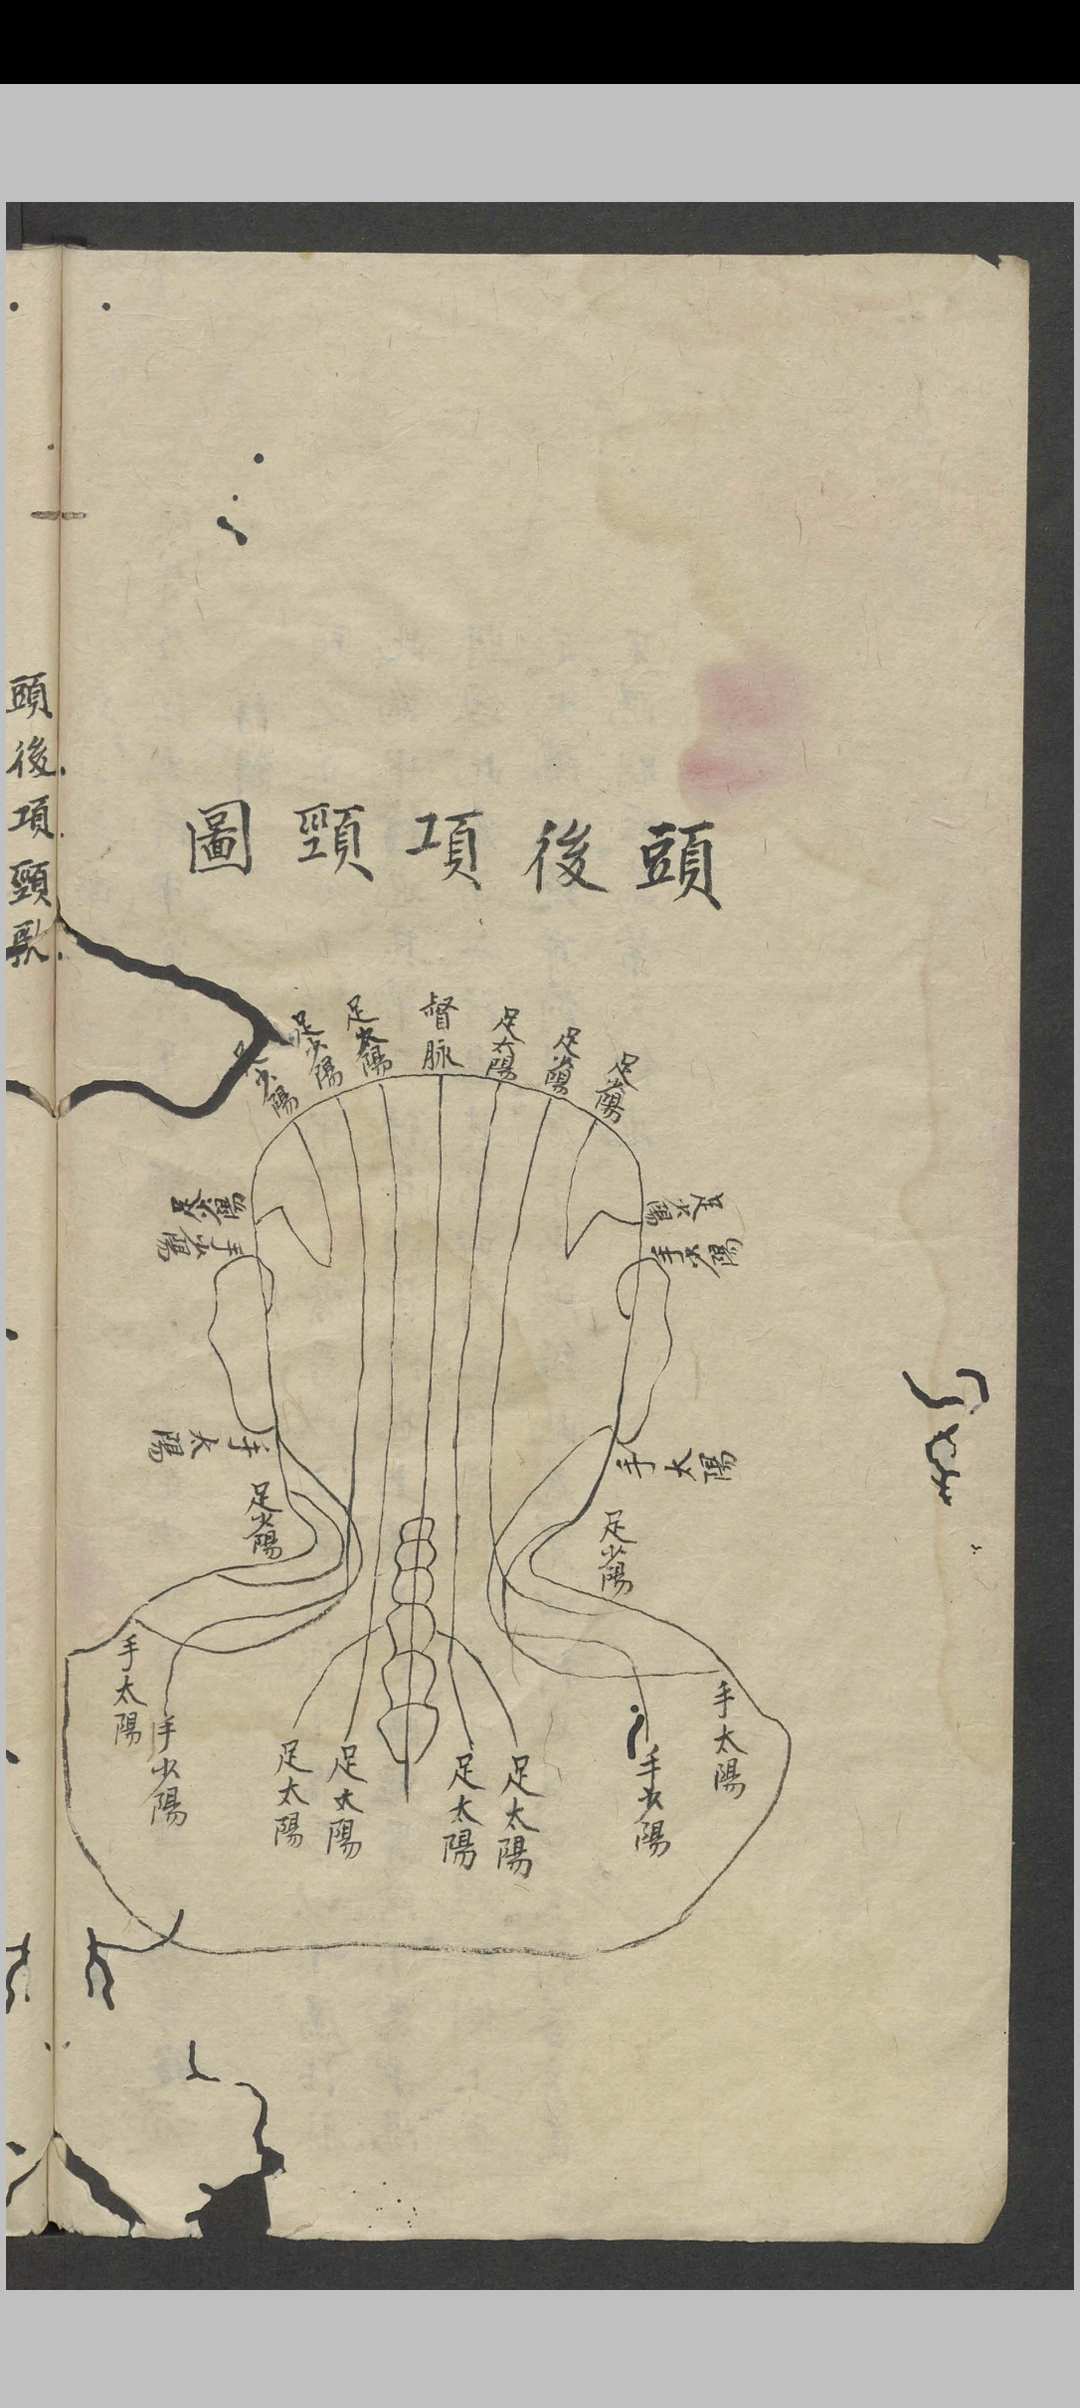 頭後項頸圖
足少陽
足太陽
督脉
足太陽
足少陽
足少陽
足少陽
足少陽
足少陽
手少陽
手少陽
手太陽
手太陽
足少陽
足少陽
手太陽
手少陽
足太陽
足太陽
足太陽
足太陽
手少陽
手太陽
頭後項頸歌